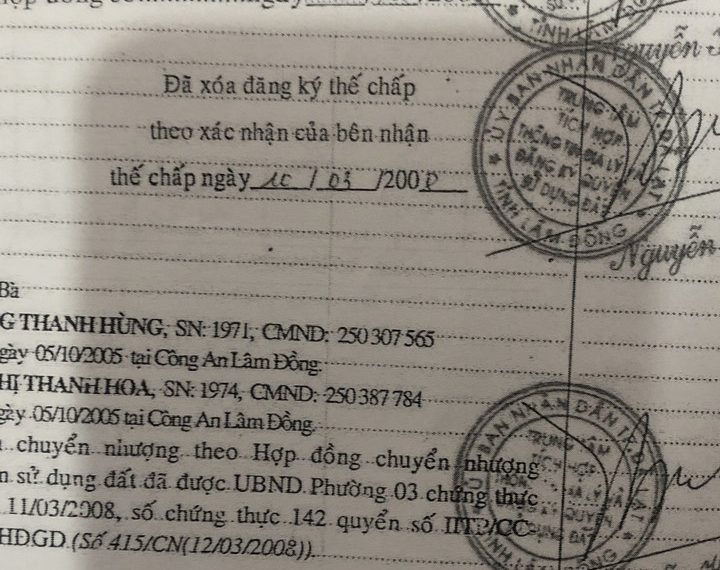 Đã xóa đăng ký thế chấp
theo xác nhận của bên nhận
thế chấp ngày 10/03/200
ỦY BAN NHÂN DÂN TP. ĐÀ LẠT
TRUNG TÂM
TÍCH HỢP
THÔNG TIN ĐỊA LÝ VÀ
ĐĂNG KÝ QUYỀN
SỬ DỤNG ĐẤT
TỈNH LÂM ĐỒNG
Nguyễn
Bà
G THANH HÙNG, SN: 1971, CMND: 250 307 565
gày 05/10/2005 tại Công An Lâm Đồng.
HỊ THANH HOA, SN: 1974, CMND: 250 387 784
gày 05/10/2005 tại Công An Lâm Đồng.
chuyển nhượng theo Hợp đồng chuyển nhượng
n sử dụng đất đã được UBND Phường 03 chứng thực
11/03/2008, số chứng thực 142 quyển số
HĐGD (Số 415/CN(12/03/2008)).